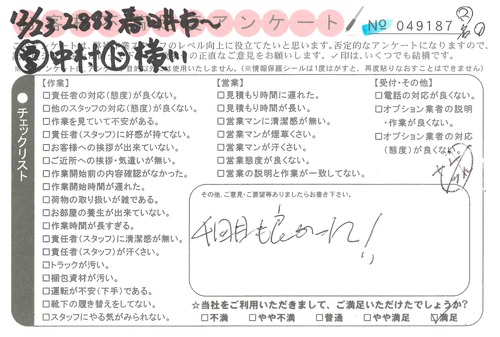 12/23 2883 春日井市〜
アンケート
No 049187
㊛中村 ㊤横川
のレベル向上に役立てたいと思います。否定的なアンケートになりますので、
の正直なご意見をお願い致します。✓印は、いくつでも結構です。
使用いたしません。(※情報保護シールは1度はがすと、再度貼りなおすことはできません)
チェックリスト
【作業】
□責任者の対応(態度)が良くない。
□他のスタッフの対応(態度)が良くない。
□作業を見ていて不安がある。
□責任者(スタッフ)に好感が持てない。
□お客様への挨拶が出来ていない。
□ご近所への挨拶・気遣いが無い。
□作業開始前の内容確認がなかった。
□作業開始時間が遅れた。
□荷物の取り扱いが雑である。
□お部屋の養生が出来ていない。
□作業時間が長すぎる。
□責任者(スタッフ)に清潔感が無い。
□責任者(スタッフ)が汗くさい。
□トラックが汚い。
□梱包資材が汚い。
□運転が不安(下手)である。
□靴下の履き替えをしてない。
□スタッフにやる気がみられない。
【営業】
□見積もり時間に遅れた。
□見積もり時間が長い。
□営業マンに清潔感が無い。
□営業マンが煙草くさい。
□営業マンが汗くさい。
□営業態度が良くない。
□営業の説明と作業が一致してない。
【受付・その他】
□電話の対応が良くない。
□オプション業者の説明
・作業が良くない。
□オプション業者の対応
(態度)が良くない。
その他、ご意見・ご要望等ありましたらお書き下さい。
4回目も良かった!!
☆当社をご利用いただきまして、ご満足いただけたでしょうか?
□不満 □やや不満 □普通 □やや満足 ☑満足